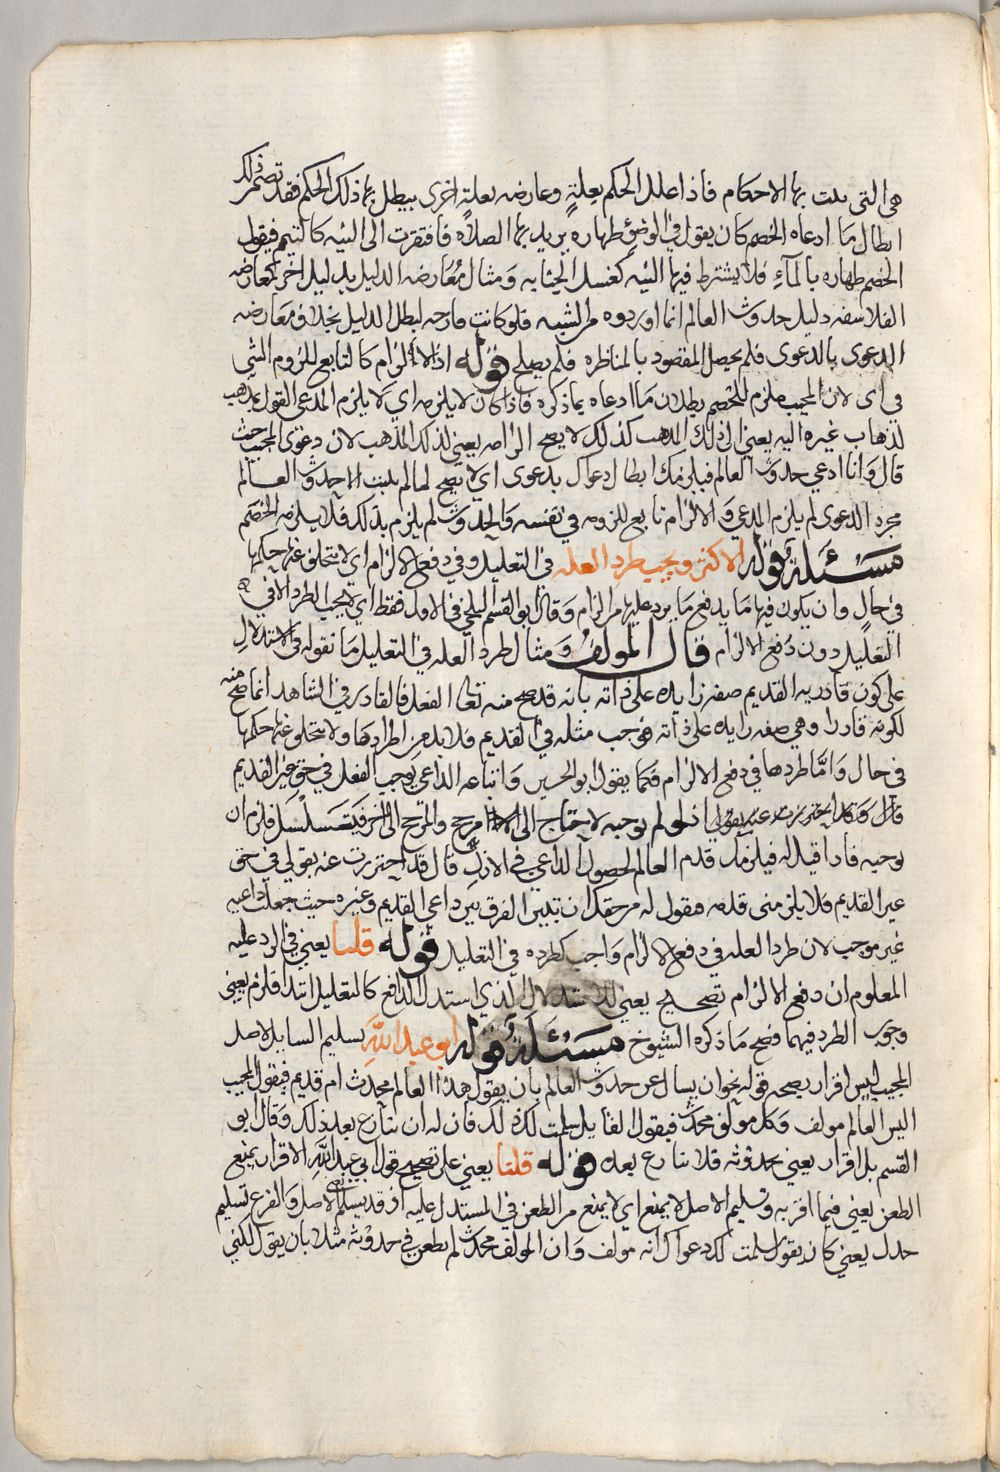 هي التي يثبت بها الاحكام فاذا علل الحكم بعلةٍ وعارضه بعلةٍ اخرى يبطل بها ذلك الحكم فقد تضمن ذلك
ابطال ما ادعاه الخصم كان يقول في الوضؤ طهاره يريد بها الصلاه فافتقرت الى النيه كالتيمم فيقول
الخصم طهاره بالمآءِ فلا يشترط فيها النيه كغسل الجنابه ومثال مُعَارضه الدليل بدليل اخر كمعارضه
الفلاسفه دليل حدوث العالم انما اوردوه من الشبه فلو كانت قادحه لبطل الدليل بخلاف معَارضه
الدعوى بالدعوى فلم يحصل المقصود بالمناظره فلم يصلح قوله اذ الالزام كالتابع للزوم الشي
في اى لان المجيب ملزم للخصم بطلان ما ادعاه بما ذكره فاذا كان لا يلزمه اي لا يلزم المدعى القول بمذهب
لذهاب غيره اليه يعني الى ذلك المذهب كذلك لا يصح الزامه يعني لذلك المذهب لان دعوى المجيب حيث
قال وانا ادعي حدوث العالم فيلزمك ابطال دعواك بدعوى اي لا يصح لما لم يثبت الاحدوث العالم
مجرد الدعوى لم يلزم المدعي والالزام تابع للزومه في نفسه والحدوث لم يلزم بذلك فلا يلزمه الخصم
مسئلة قوله الاكثر ويجب طرد العله في التعليل وفي دفع الالزام اي لا تتخلف عنها حكمها
في حالٍ وان يكون فيها ما يدفع ما يرد عليها من الزام وقال ابو القسم البلخي في الاول فقط اي لا يجب الطرد الا في
التعليل دون دفع الالزام قال المولف ومثال طرد العله في التعليل ما نقوله في الاستدلال
على كون قادريه القديم صفه زايده على ذاته بانه قد صح منه تعالى الفعل فالقادر في الشاهد انما صح منه
لكونه قادرا وهي صفه زايده على ذاته فوجب مثله في القديم فلا بد من اطرادها ولا تتخلف عنها حكمها
في حال وامَّا طردها في دفع الالزام فكما يقول ابو الحسين واتباعه الداعي يوجب الفعل في حق غير القديم
قال اذ لو لم يوجبه لاحتاج الى مرجح والمرجح الى اخر فيتسلسل فلزم ان
يوجبه فاذا قيل له فيلزمك قدم العالم لحصول الداعي في الازل قال قد احترزت عنه بقولي في حق
غير القديم فلا يلزمني قدمه فيقول له من حقك ان تبين الفرق بين داعي القديم وغيره حيث جعلت داعيه
غير موجب لان طرد العله في دفع الالزام واجب كطرده في التعليل قوله قلنا يعني في الرد عليه
المعلوم ان دفع الالزام تصحيح يعني للاستدلال الذي استدل الدافع كالتعليل ابتدا فلزم يعني
وجوب الطرد فيهما فصح ما ذكره الشيوخ مسئلة قوله ابو عبد الله تسليم السايل لاصل
المجيب ليس اقرار بصحه قوله نحو ان يسال عن حدوث العالم بان يقول هذا العالم محدث ام قديم فيقول المجيب
اليس العالم مولف وكل مولف محدث فيقول القايل سلمت لك ذلك فان له ان ينازع بعد ذلك وقال ابو
القسم بل اقرار يعني بحدوثه فلا ينازع بعده قوله قلنا يعني على تصحيح قول ابي عبد الله الاقرار يمنع
الطعن يعني فيما اقر به وتسليم الاصل لا يمنع اي لا يمنع من الطعن في المستدل عليه اذ قد يسلم الاصل والفرع تسليم
جدل يعني كان يقول سلمت لك دعواك انه مولف وان المولف محدث لم يطعن في حدوثه مثلا بان يقول لكني